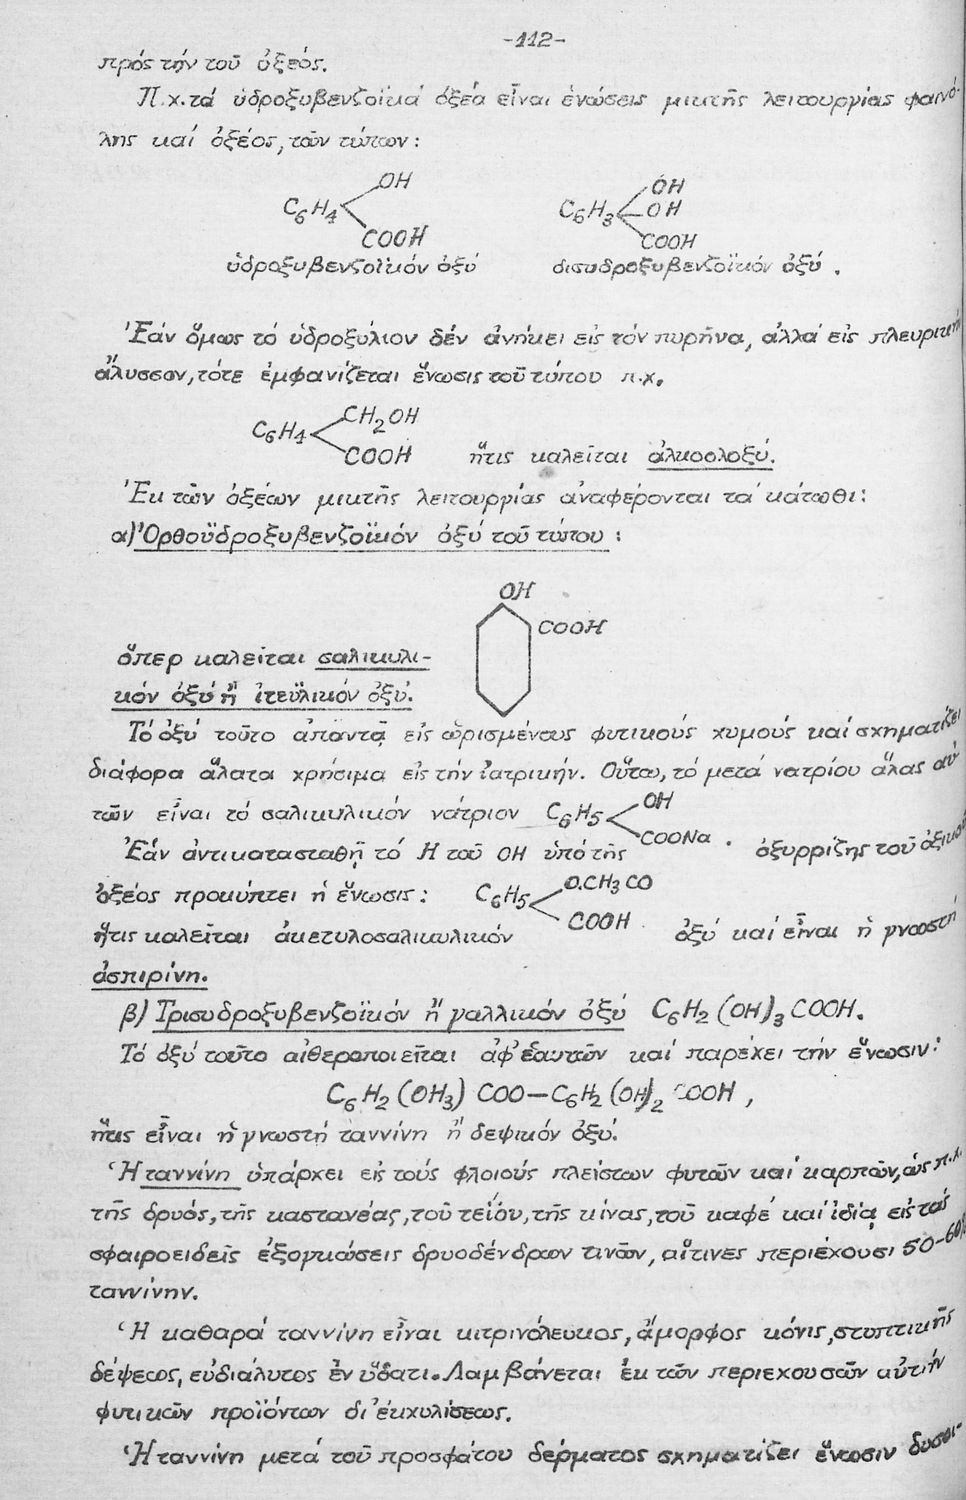 -112-
πρός τήν τοῦ ὀξεός.
Π.χ. τά ὑδροξυβενζοϊκά ὀξέα εἶναι ἑνώσεις μικτῆς λειτουργίας φαινό-
λης καί ὀξέος, τῶν τύπων:
OH OH
C6H4 C6H3 OH
COOH COOH
ὑδροξυβενζοϊκόν ὀξύ δισυδροξυβενζοϊκόν ὀξύ.
Ἐάν ὅμως τό ὑδροξύλιον δέν ἀνήκει εἰς τόν πυρῆνα, ἀλλά εἰς πλευρικήν
ἅλυσσον, τότε ἐμφανίζεται ἕνωσις τοῦ τύπου π.χ.
CH2OH
C6H4
COOH ἥτις καλεῖται ἀλκοολοξύ.
Ἐκ τῶν ὀξέων μικτῆς λειτουργίας ἀναφέρονται τά κάτωθι:
α) Ὀρθοϋδροξυβενζοϊκόν ὀξύ τοῦ τύπου:
OH
COOH
ὅπερ καλεῖται σαλικυλι-
κόν ὀξύ ἤ ἰτεϋλικόν ὀξύ.
Τό ὀξύ τοῦτο ἀπαντᾷ εἰς ὡρισμένους φυτικούς χυμούς καί σχηματίζει
διάφορα ἅλατα χρήσιμα εἰς τήν ἰατρικήν. Οὕτω, τό μετά νατρίου ἅλας αὐ-
τῶν εἶναι τό σαλικυλικόν νάτριον C6H5 OH
COONa.
Ἐάν ἀντικατασταθῇ τό H τοῦ OH ὑπό τῆς ὀξυρρίζης τοῦ ὀξικοῦ
ὀξέος προκύπτει ἡ ἕνωσις: C6H5 O.CH3CO
COOH
ἥτις καλεῖται ἀκετυλοσαλικυλικόν ὀξύ καί εἶναι ἡ γνωστή
ἀσπιρίνη.
β) Τρισυδροξυβενζοϊκόν ἤ γαλλικόν ὀξύ C6H2 (OH)3 COOH.
Τό ὀξύ τοῦτο αἰθεροποιεῖται ἀφ' ἑαυτῶν καί παρέχει τήν ἕνωσιν:
C6H2 (OH3) COO–C6H2 (OH)2 COOH,
ἥτις εἶναι ἡ γνωστή ταννίνη ἤ δεψικόν ὀξύ.
Ἡ ταννίνη ὑπάρχει εἰς τούς φλοιούς πλείστων φυτῶν καί καρπῶν, ὡς π.χ.
τῆς δρυός, τῆς καστανέας, τοῦ τεΐου, τῆς κίνας, τοῦ καφέ καί ἰδίᾳ εἰς τάς
σφαιροειδεῖς ἐξογκώσεις δρυοδένδρων τινῶν, αἵτινες περιέχουσι 50-60%
ταννίνην.
Ἡ καθαρά ταννίνη εἶναι κιτρινόλευκος, ἄμορφος κόνις, στυπτικῆς
δέψεως, εὐδιάλυτος ἐν ὕδατι. Λαμβάνεται ἐκ τῶν περιεχουσῶν αὐτήν
φυτικῶν προϊόντων δι' ἐκχυλίσεως.
Ἡ ταννίνη μετά τοῦ προσφάτου δέρματος σχηματίζει ἕνωσιν δυσδι-